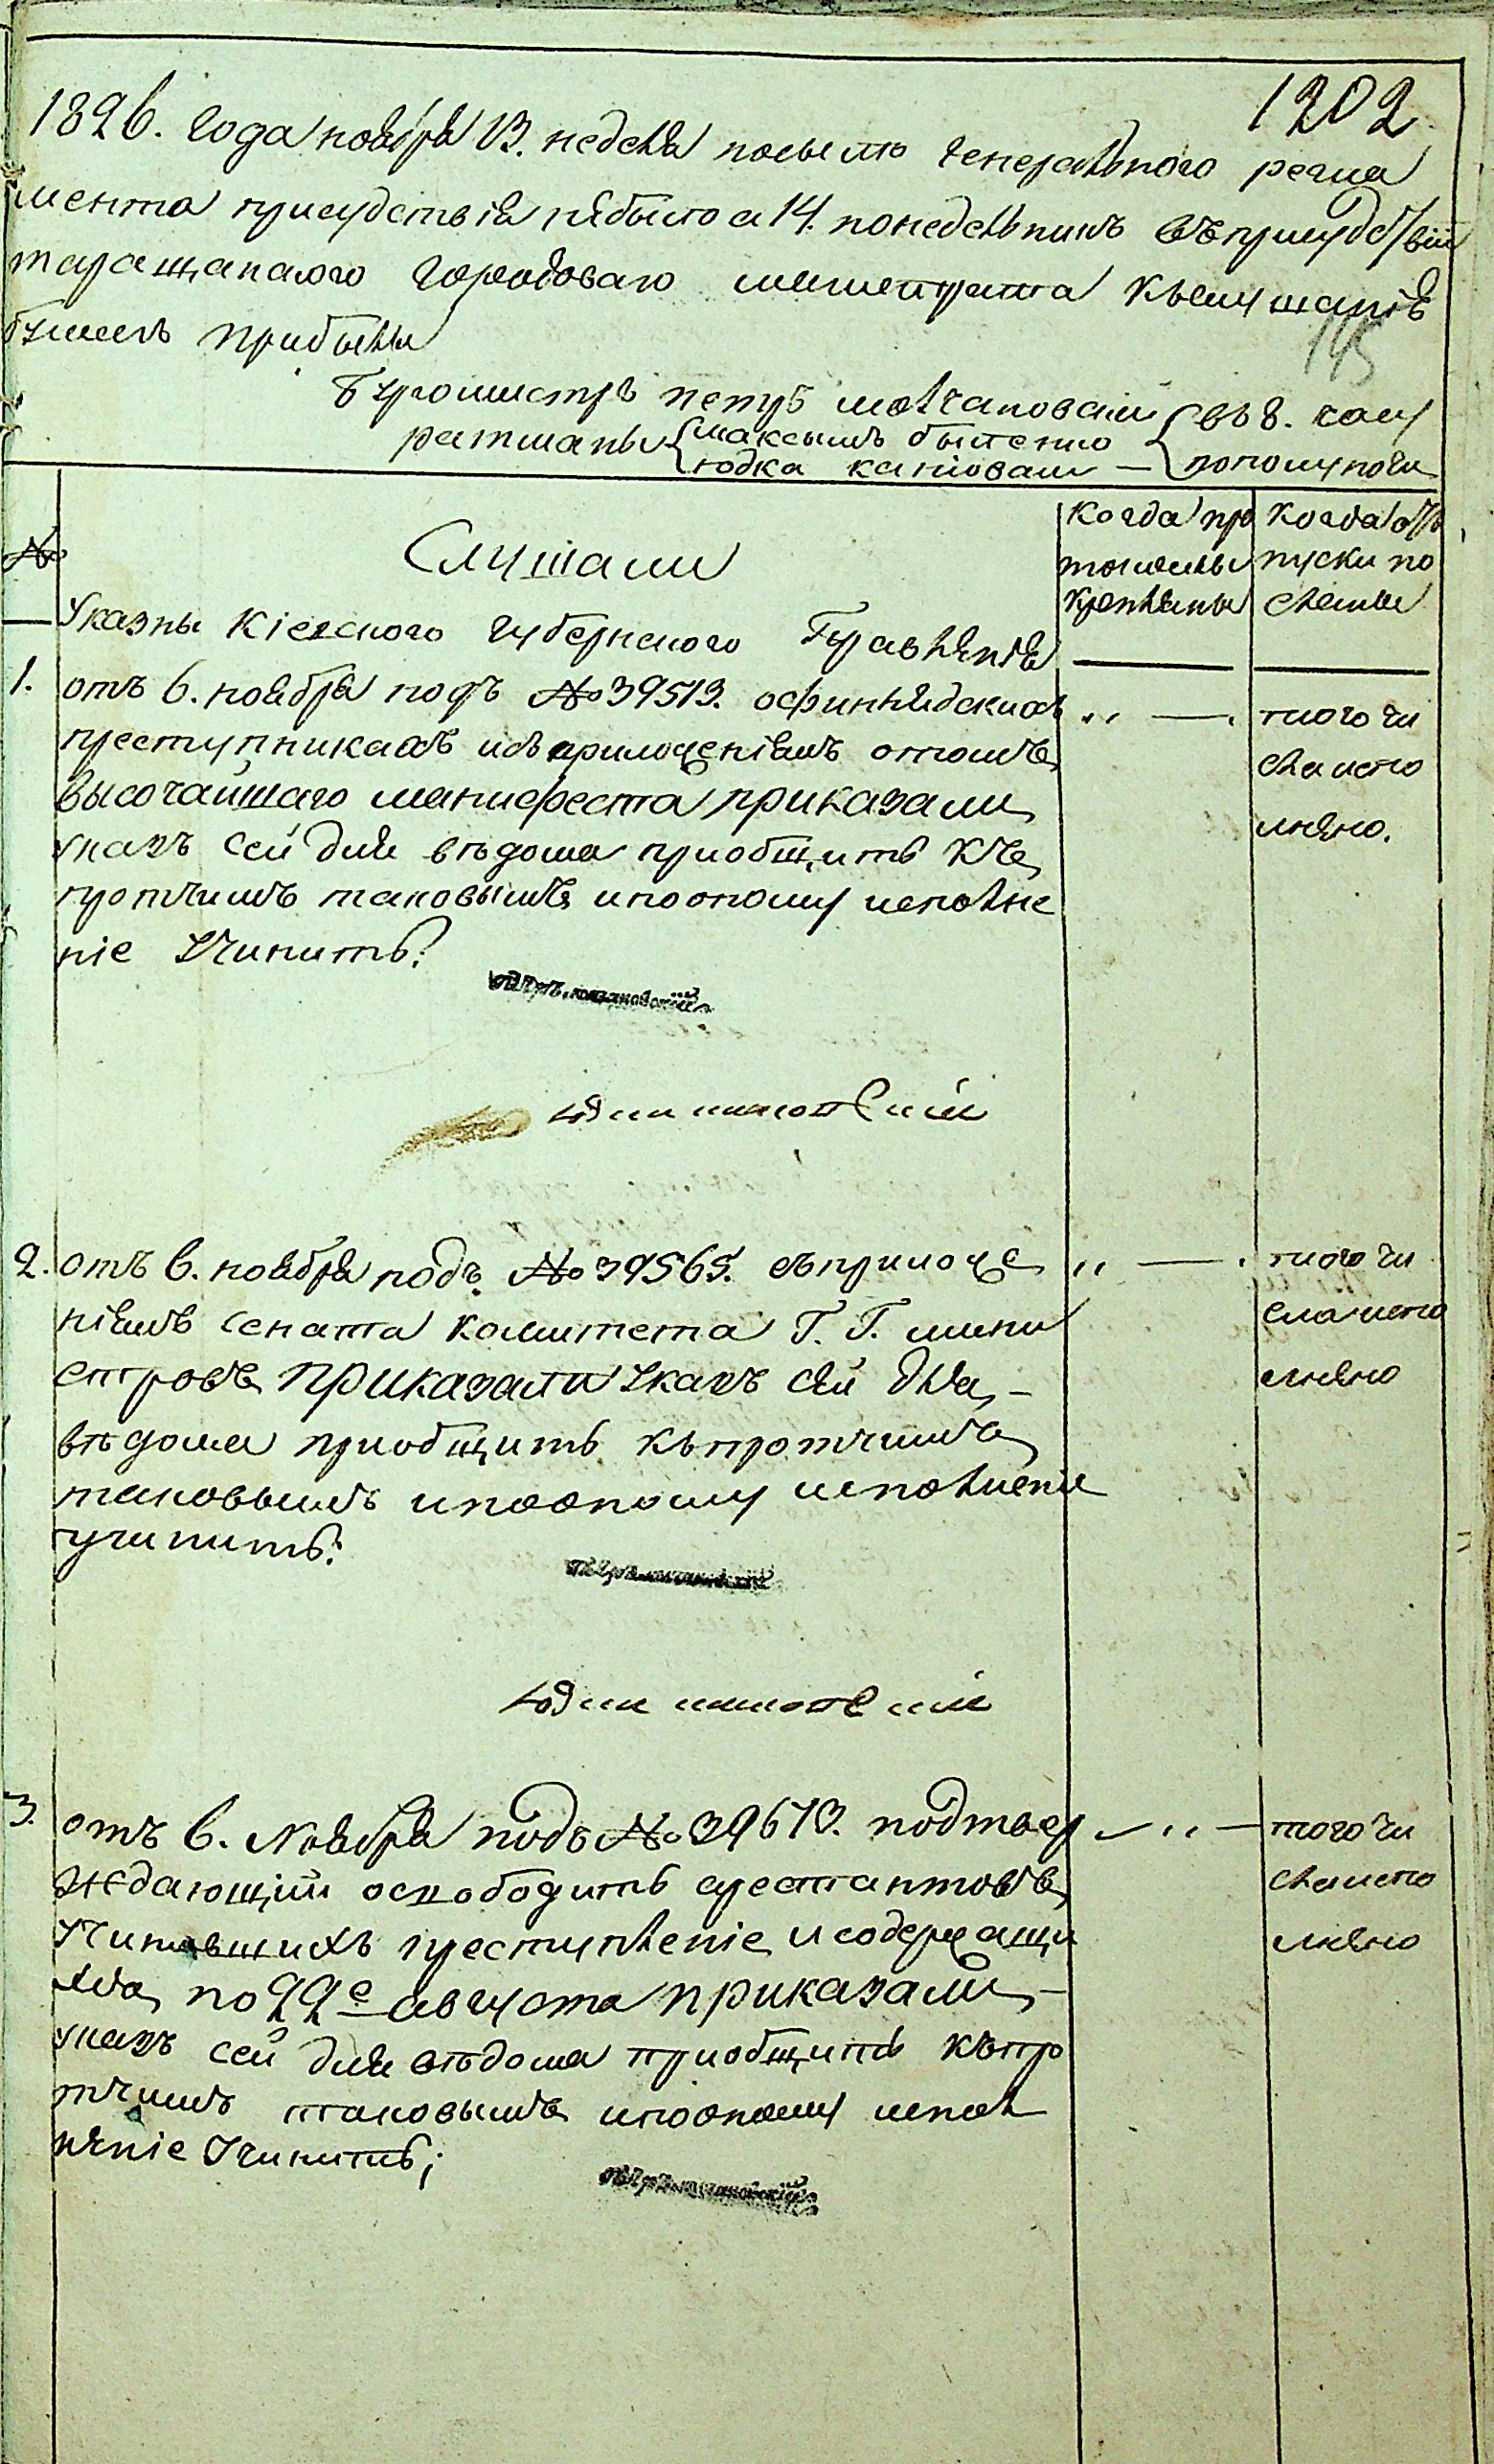 1202
1826. Года ноября 13. неделя посылѣ Генералного регла
мента присудствія небыло а 14. понеделникъ въ присудствіи
таращанского Городоваго магистрата къ слушанію
бумагъ прибыли
145
Бургомистръ петръ молчановскій въ 8. часу
ратманы максымъ
юдка — пополуночи
№
Слушали
когда про
токолы
крепляны
когда от
пуски по
сланы
Указы Кіевского Губернского Правленія
1. отъ 6. ноября подъ № 39513. о финлядскихъ
преступникахъ и съ приложеніемъ о томъ
высочайшаго манифеста приказали
указъ сей для вѣдома приобщить къ
протчимъ таковымъ и по оному исполне
ніе Учинить?
„ — того чи
сла испо
лнено.
2. отъ 6. ноября подъ № 39565. съ приложе
ніемъ Сената комитета Г. Г. мини
стровъ приказали Указъ сей для
вѣдома приобщить къ протчимъ
таковымъ и по оному исполненіе
учинить?
„ — того чи
сла испо
лнено
3. отъ 6. Ноября подъ № 39673. подтвер
ждающій освободить арестантовъ
Учинившихъ преступленіе и содержащи
хся по 22е августа приказали
указъ сей для вѣдома приобщить къ про
тчимъ таковымъ и по оному испол
неніе Учинить;
„ — того чи
сла испо
лнено